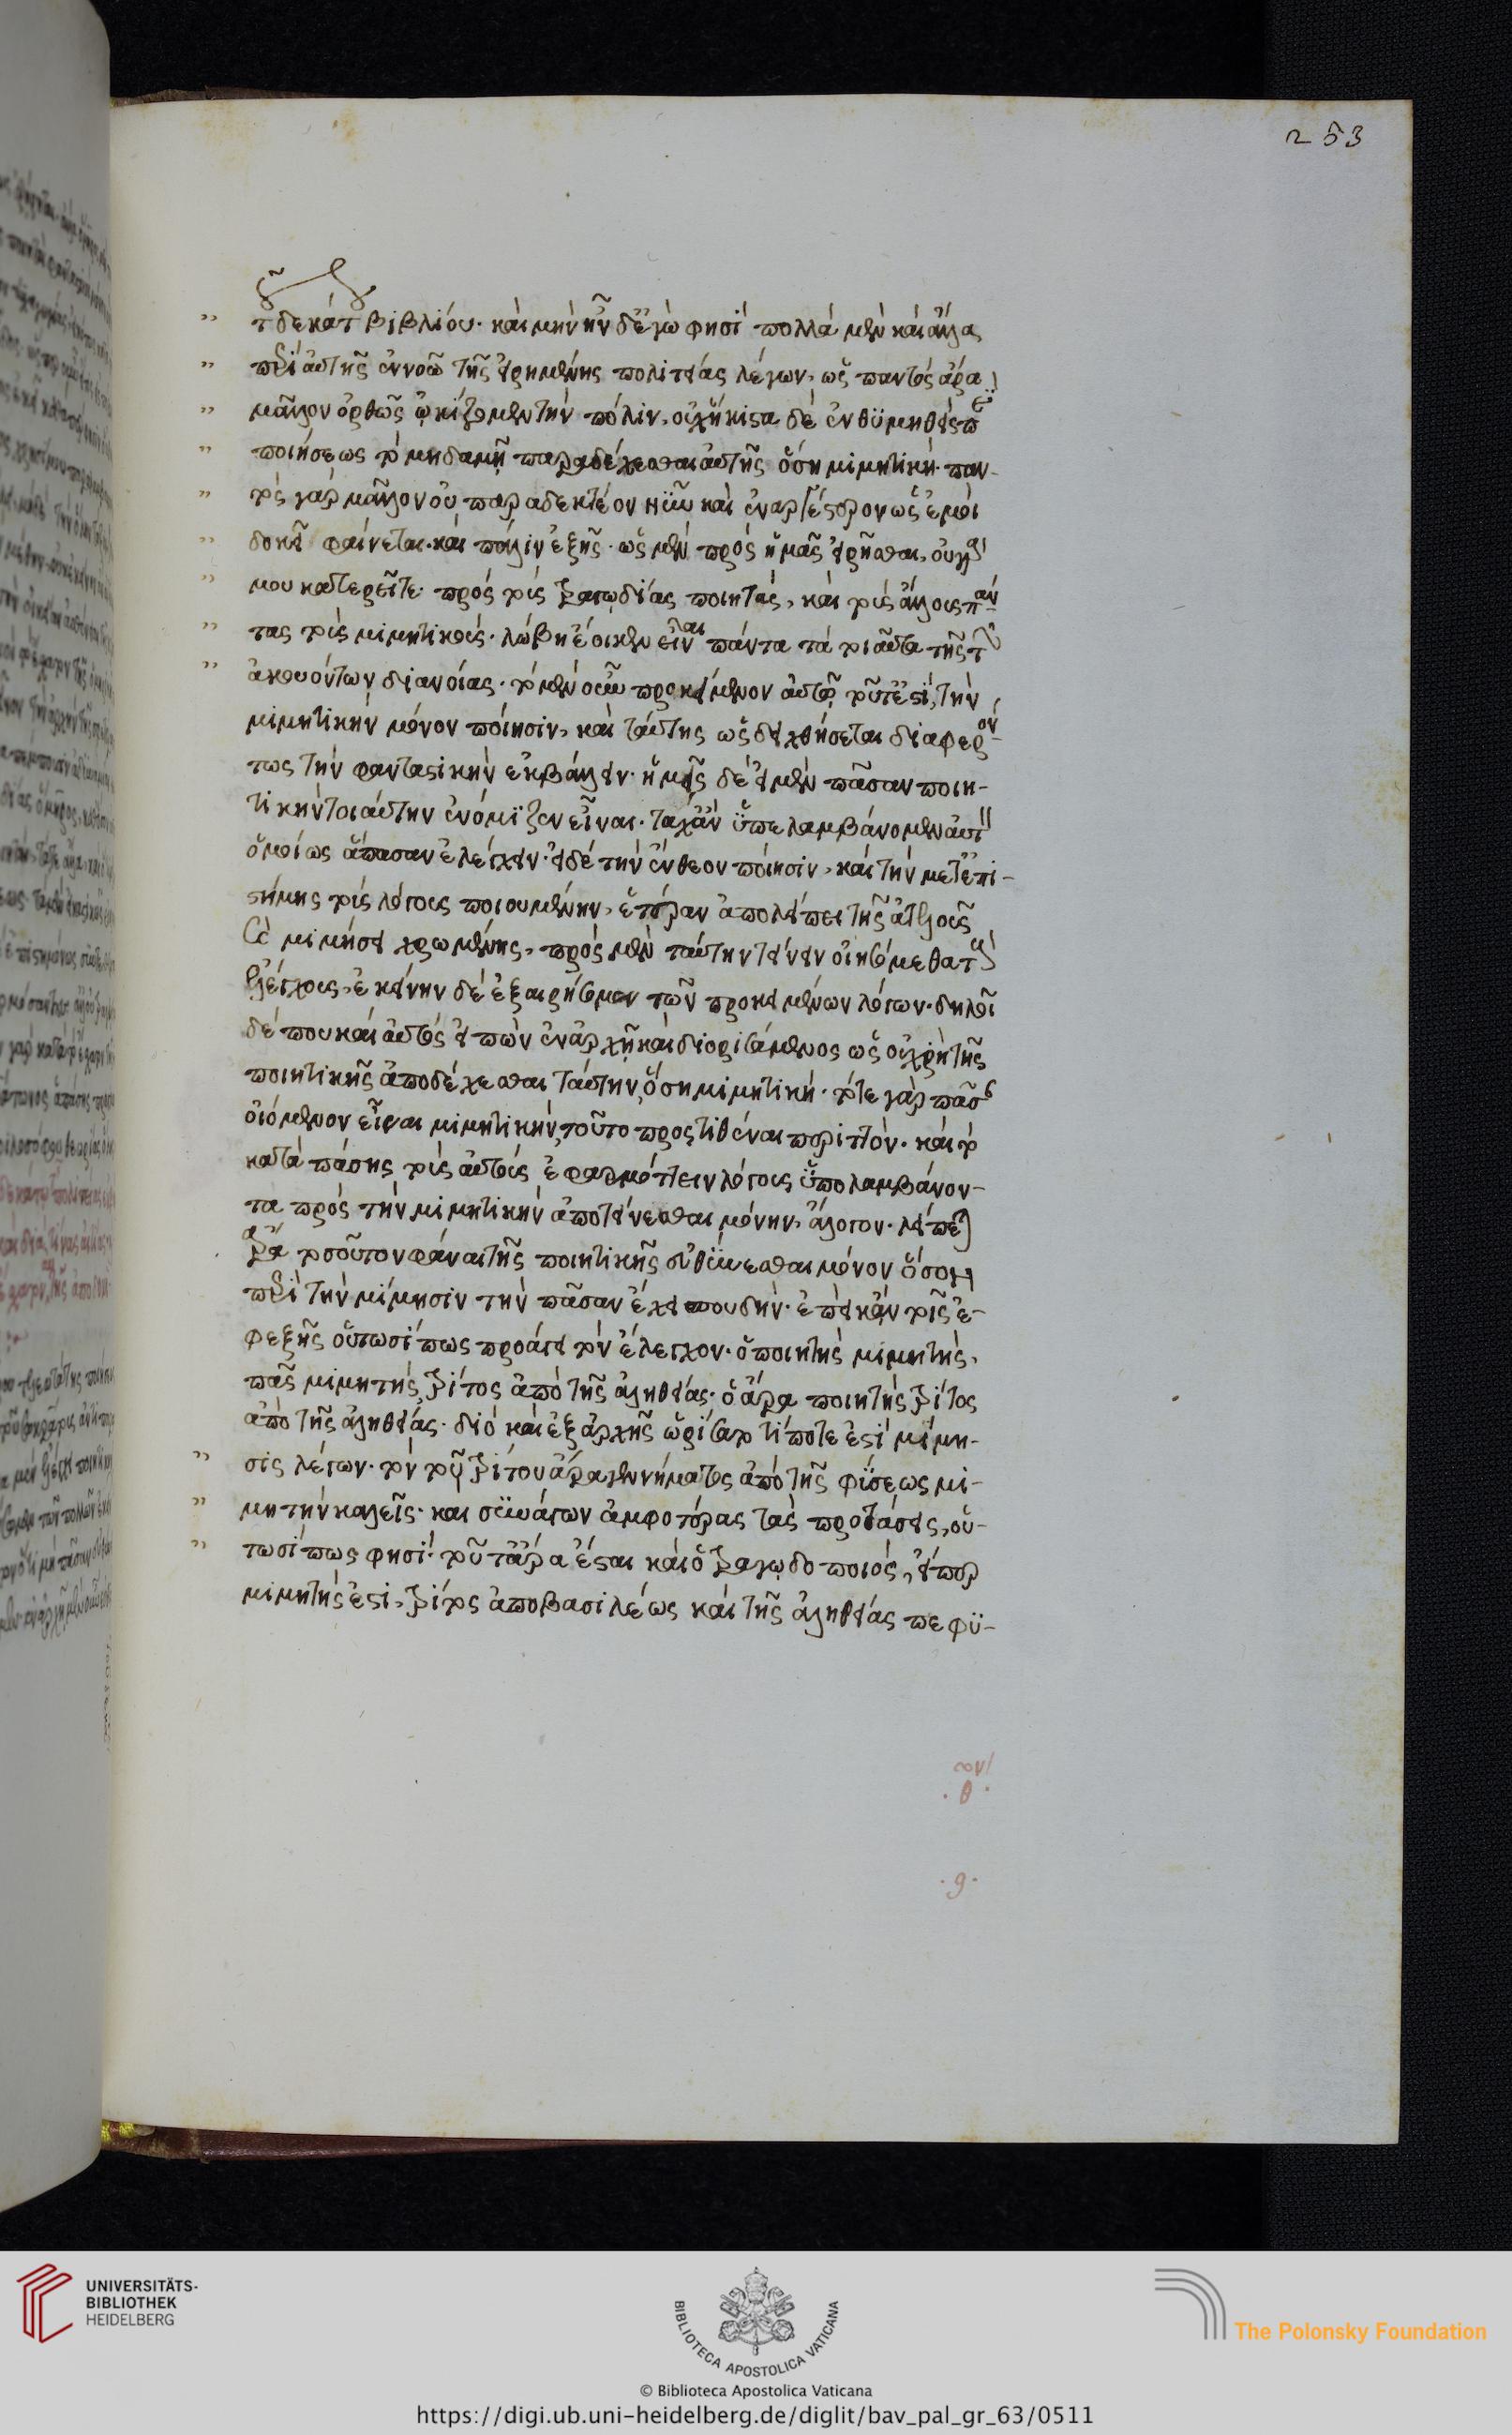 253
τοῦ δεκάτου βιβλίου· καὶ μὴν ἦν δ' ἐγώ φησί πολλὰ μὲν καὶ ἄλλα
περὶ αὐτῆς ἐννοῶ τῆς εἰρημένης πολιτείας λέγων, ὡς παντὸς ἄρα
μᾶλλον ὀρθῶς ᾠκίζομεν τὴν πόλιν, οὐχ ἥκιστα δὲ ἐνθυμηθεὶς περὶ
ποιήσεως τὸ μηδαμῇ παραδέχεσθαι αὐτῆς ὅση μιμητική· παν-
τὸς γὰρ μᾶλλον οὐ παραδεκτέον νῦν καὶ ἐναργέστερον ὡς ἐμοὶ
δοκεῖ φαίνεται· καὶ πάλιν ἑξῆς· ὡς μὲν πρὸς ἡμᾶς εἰρῆσθαι, οὐ γάρ
μου κατερεῖτε πρὸς τοὺς τραγῳδίας ποιητὰς, καὶ τοὺς ἄλλους παν-
τας τοὺς μιμητικούς· λώβη ἔοικεν εἶναι πάντα τὰ τοιαῦτα τῆς τῶν
ἀκουόντων διανοίας· τὸ μὲν οὖν προκείμενον αὐτῷ τοῦτ' ἐστὶ, τὴν
μιμητικὴν μόνον ποίησιν, καὶ ταύτης ὡς δειχθήσεται διαφερόν-
τως τὴν φανταστικὴν ἐκβάλλειν· ἡμεῖς δὲ εἰ μὲν πᾶσαν ποιη-
τικὴν τοιαύτην ἐνόμιζεν εἶναι· τάχ' ἂν ὑπελαμβάνομεν αὐτὴν
ὁμοίως ἅπασαν ἐλέγχειν· εἰ δὲ τὴν ἔνθεον ποίησιν, καὶ τὴν μετ' ἐπι-
στήμης τοὺς λόγους ποιουμένην, ἑτέραν ἀπολείπει τῆς ἀτελοῦς
καὶ μιμήσει χρωμένης, πρὸς μὲν ταύτην τείνειν οἰησόμεθα τοὺς
ἐλέγχους, ἐκείνην δὲ ἐξαιρήσομεν τῶν προκειμένων λόγων· δηλοῖ
δέ που καὶ αὐτὸς εἰπὼν ἐν ἀρχῇ καὶ διορισάμενος ὡς οὐ χρὴ τῆς
ποιητικῆς ἀποδέχεσθαι ταύτην, ὅση μιμητική· τό τε γὰρ πᾶσαν
οἰόμενον εἶναι μιμητικὴν, τοῦτο προστιθέναι περιττόν· καὶ τὸ
κατὰ πάσης τοὺς αὐτοὺς ἐφαρμόττειν λόγους ὑπολαμβάνον-
τα πρὸς τὴν μιμητικὴν ἀποτείνεσθαι μόνην, ἄλογον· λείπεται
ἄρα τοσοῦτον φάναι τῆς ποιητικῆς εὐθύνεσθαι μόνον ὅσον
περὶ τὴν μίμησιν τὴν πᾶσαν ἔχει σπουδήν· ἐπεὶ κἀν τοῖς ἐ-
φεξῆς οὑτωσί πως προάγει τὸν ἔλεγχον· ὁ ποιητὴς μιμητής,
πᾶς μιμητὴς τρίτος ἀπὸ τῆς ἀληθείας· ὁ ἄρα ποιητὴς τρίτος
ἀπὸ τῆς ἀληθείας· διὸ καὶ ἐξ ἀρχῆς ὡρίσατο τί ποτέ ἐστι μίμη-
σις λέγων· τὸν τοῦ τρίτου ἄρα γεννήματος ἀπὸ τῆς φύσεως μι-
μητὴν καλεῖς· καὶ συνάγων ἀμφοτέρας τὰς προτάσεις, οὑ-
τωσί πως φησί· τοῦτ' ἄρα ἔσται καὶ ὁ τραγῳδοποιός, εἴπερ
μιμητής ἐστι, τρίτος ἀπὸ βασιλέως καὶ τῆς ἀληθείας πεφυ-
·θ·
·9·
UNIVERSITÄTS-
BIBLIOTHEK
HEIDELBERG
BIBLIOTECA APOSTOLICA VATICANA
The Polonsky Foundation
© Biblioteca Apostolica Vaticana
https://digi.ub.uni-heidelberg.de/diglit/bav_pal_gr_63/0511